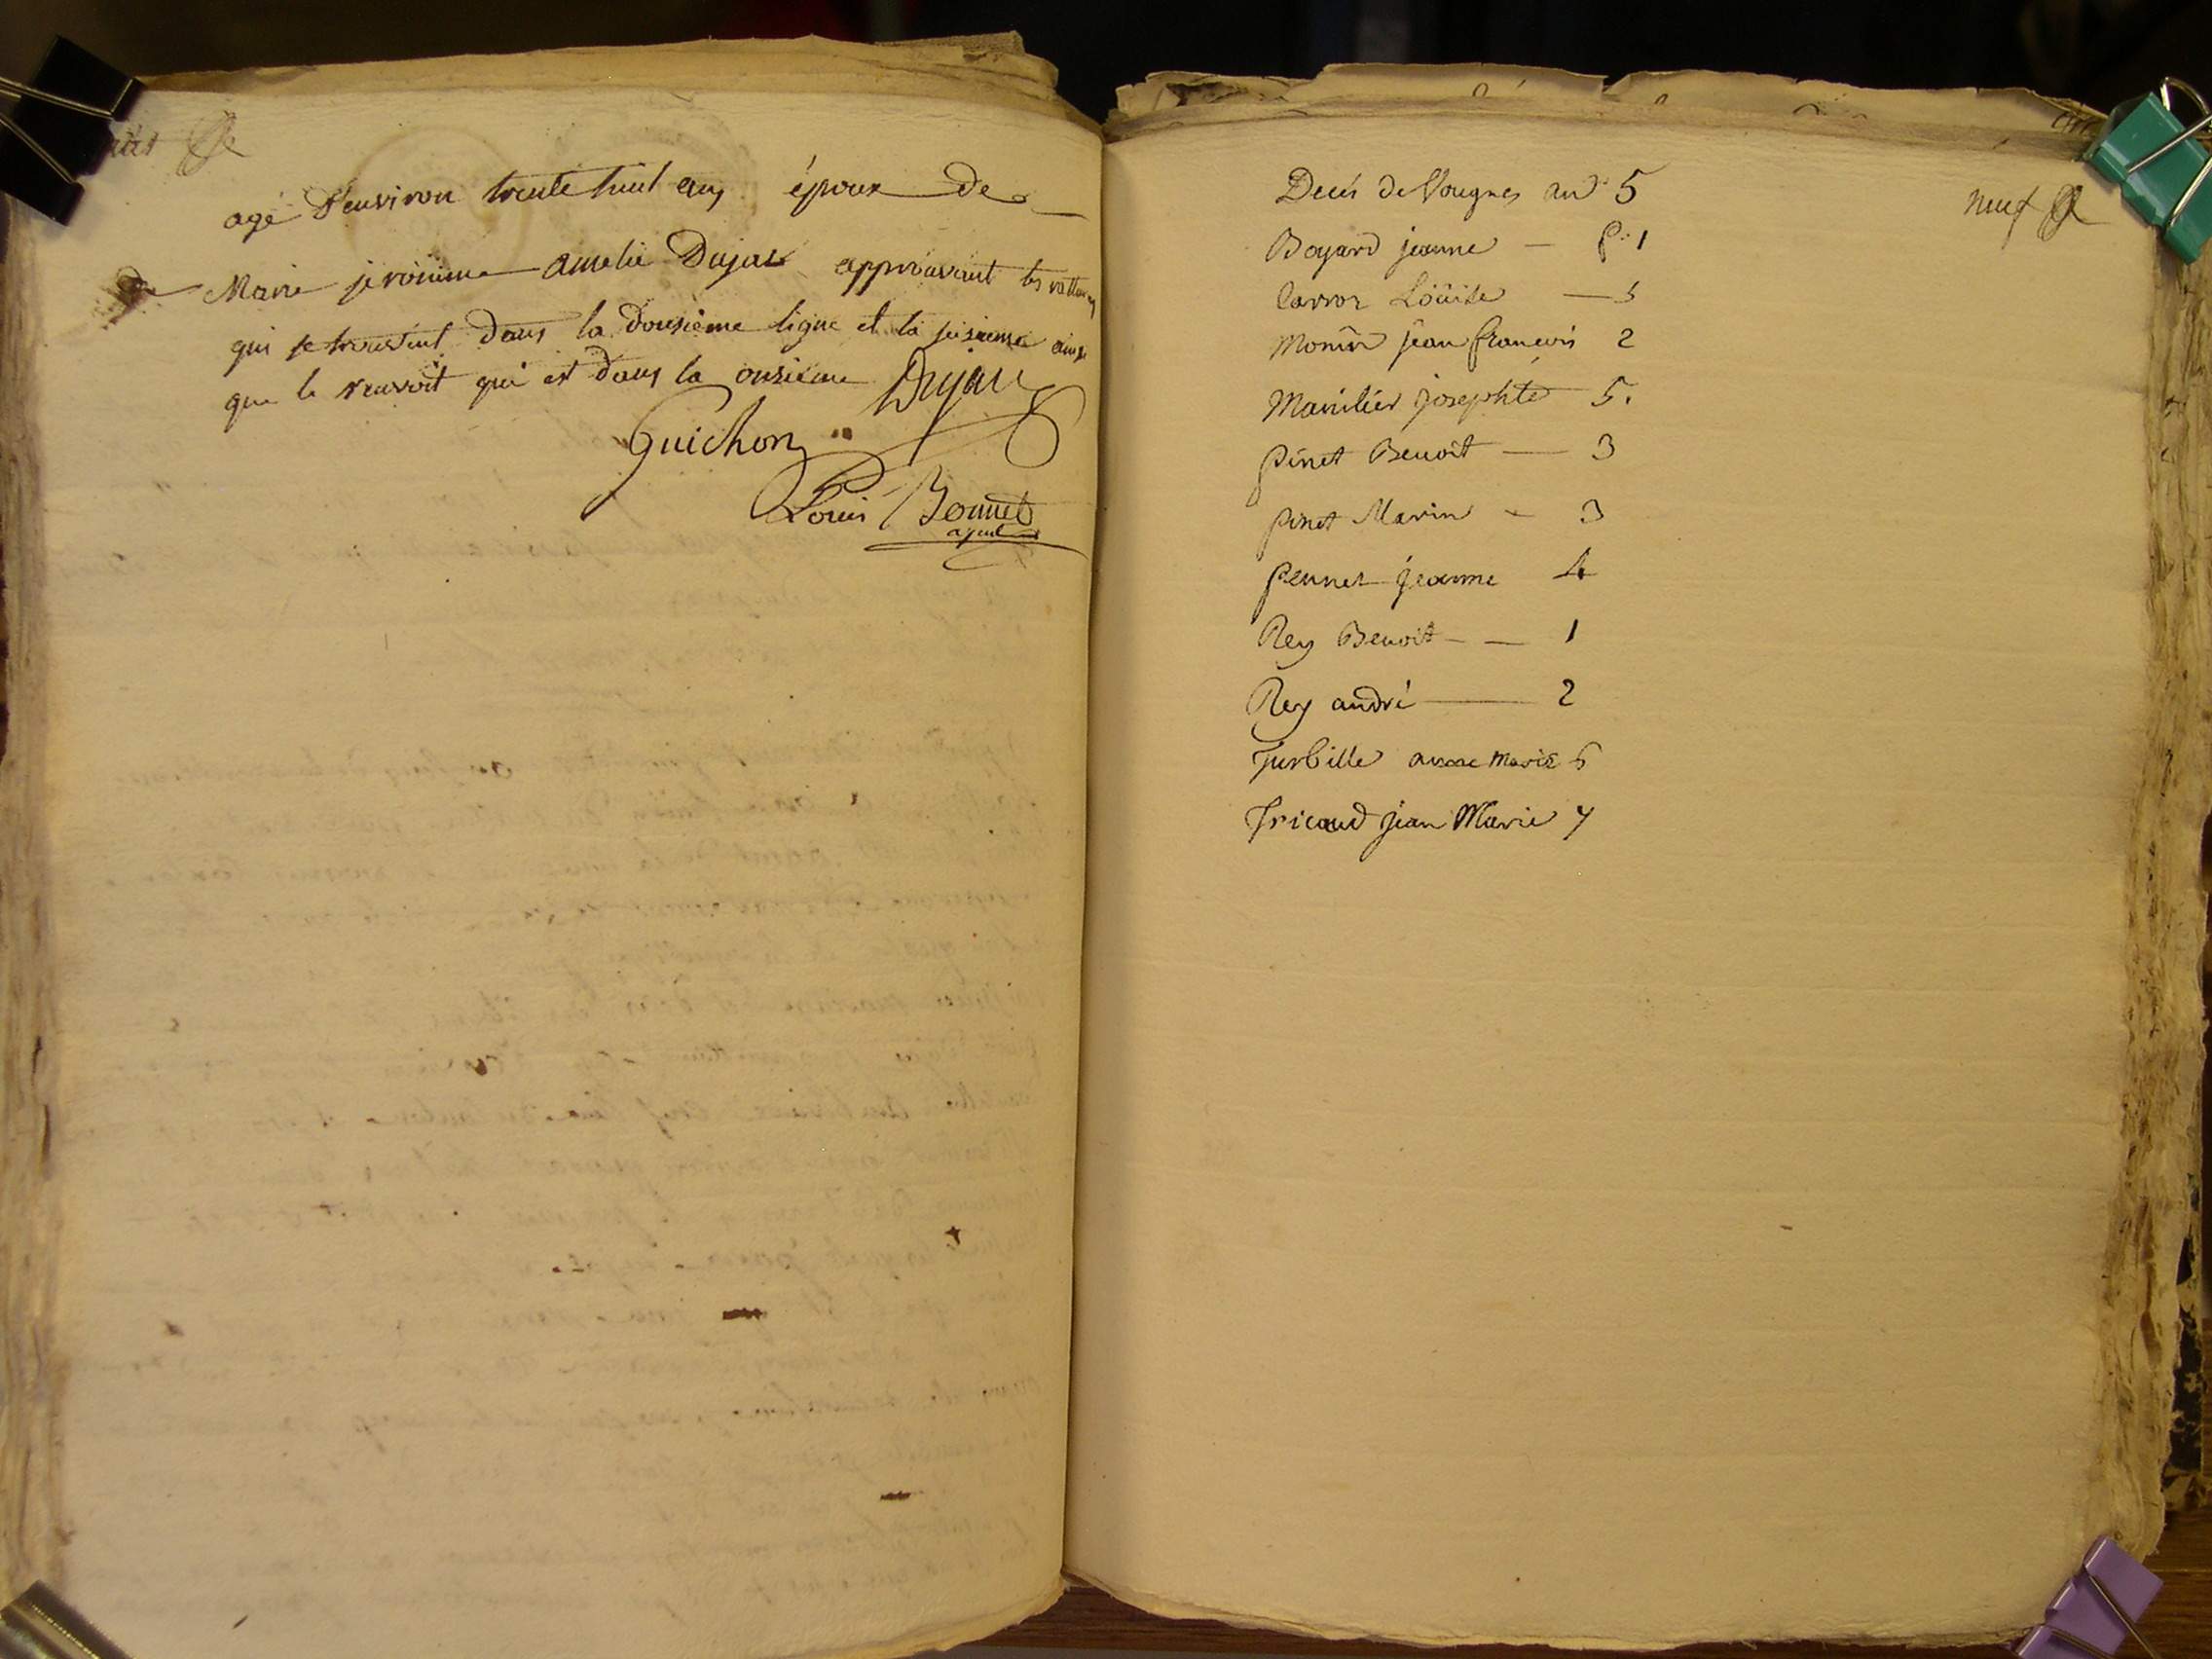 huit
agé d'environ trente huit ans époux de
Marie jeronime amelie Dujat approuvant les
qui se trouvent dans la douzième ligne et la seizieme ainsi
que le renvoit qui est dans la onzieme Dujat
Guichon
Louis Bonnet
agent
neuf
Decés de Vougnes an 5
Bogard jeanne — f. 1
Carror Loüise — 5
Monin jean francois 2
Manilier josephte 5.
pinet Benoit — 3
pinet Marin - 3
pennet jeanne 4
Rey Benoit — — 1
Rey andré — 2
Jurbille anne Marie 6
Tricaud jean Marie 7